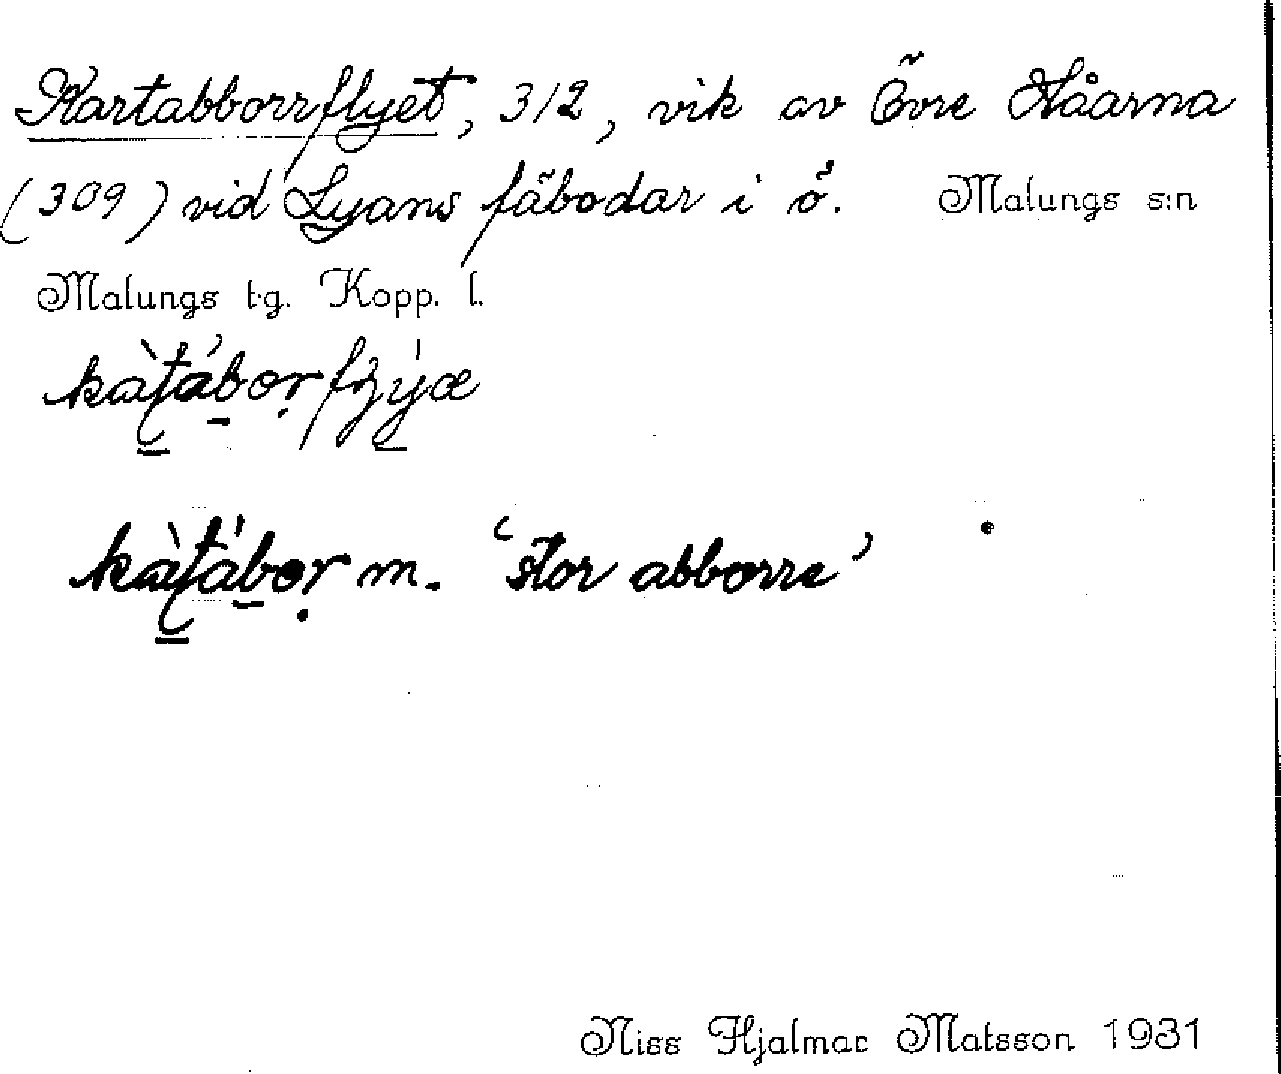 Kartabborrflyet, 312, vik av Övre Håarna
(309) vid Lyans fäbodar i ö. Malungs s:n
Malungs tg. Kopp. l.
m. 'stor abborre'
Niss Hjalmar Matsson 1931